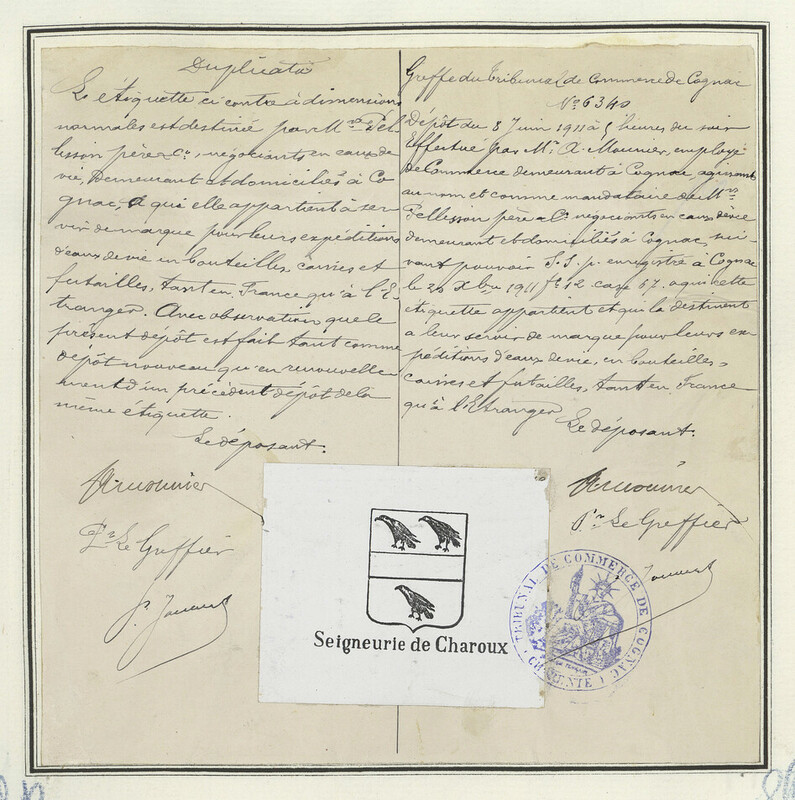 Duplicata
L'étiquette ci contre à dimensions
normales est destinée par MM. Pel-
lisson père & Co, négociants en eaux de
vie, demeurant et domiciliés à Co
gnac, à qui elle appartient à ser
vir de marque pour leurs expéditions
d'eaux de vie en bouteilles, caisses et
futailles, tant en France qu'à l'E-
tranger. Avec observation que le
présent dépôt est fait tant comme
dépôt nouveau qu'en renouvelle
ment d'un précédent dépôt de la
même etiquette.
Le déposant.
A. Mounier
Pr. Le Greffier
Greffe du Tribunal de Commerce de Cognac
No 6340
Dépôt du 8 Juin 1911 à 5 heures du soir
Effectué par Mr. A. Mounier, employé
de Commerce demeurant à Cognac agissant
au nom et comme mandataire de MM.
Pellisson père & Co négociants en eaux de vie
demeurant et domiciliés à Cognac, sui
vant pouvoir S.S.p. enregistré à Cognac
le 20 Xbre 1911 fo 12 case 67, a qui cette
étiquette appartient et qui la destinent
a leur servir de marque pour leurs ex
péditions d'eaux de vie, en bouteilles,
caisses et futailles, tant en France
qu'à l'Etranger
Le déposant.
A. Mounier
Pr. Le Greffier
Seigneurie de Charoux
TRIBUNAL DE COMMERCE DE COGNAC
(CHARENTE)